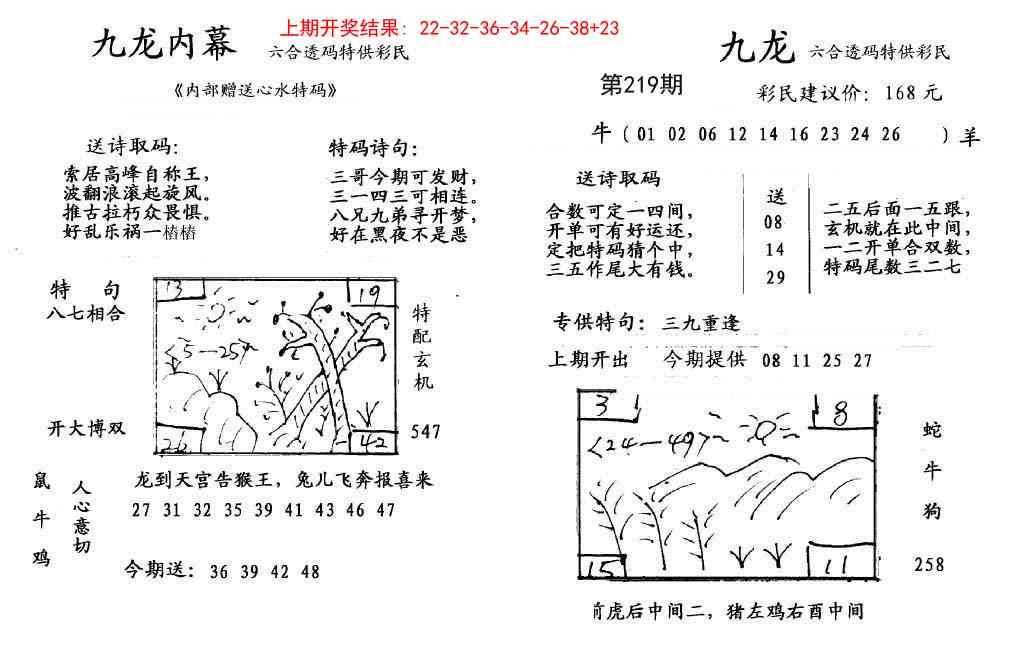 上期开奖结果：22-32-36-34-26-38+23
九龙内幕 六合透码特供彩民
《内部赠送心水特码》
送诗取码：
索居高峰自称王，
波翻浪滚起旋风。
推古拉朽众畏惧。
好乱乐祸一樁樁
特码诗句：
三哥今期可发财，
三一四三可相连。
八兄九弟寻开梦，
好在黑夜不是恶
特 句
八七相合
开大博双
13
19
<5—25>
26
42
特配玄机
547
鼠
牛
鸡
人心意切
龙到天宫告猴王，兔儿飞奔报喜来
27 31 32 35 39 41 43 46 47
今期送：36 39 42 48
九龙 六合透码特供彩民
第219期
彩民建议价：168元
牛（01 02 06 12 14 16 23 24 26 ）羊
送诗取码
合数可定一四间，
开单可有好运还，
定把特码猜个中，
三五作尾大有钱。
送
08
14
29
二五后面一五跟，
玄机就在此中间，
一二开单合双数，
特码尾数三二七
专供特句：三九重逢
上期开出 今期提供 08 11 25 27
3
8
<24—49>
15
11
蛇
牛
狗
258
前虎后中间二，猪左鸡右酉中间